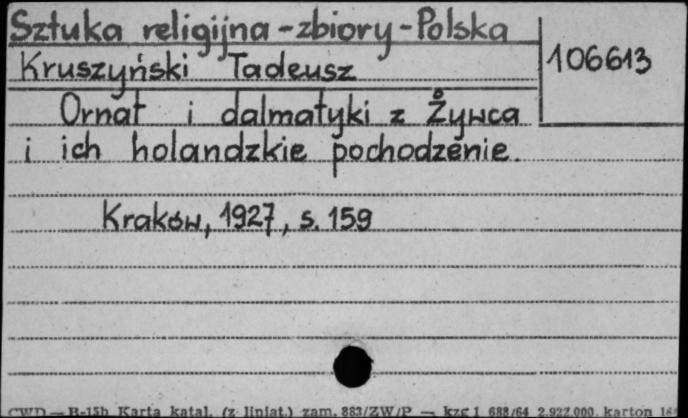 Sztuka religijna - zbiory - Polska
106613
Kruszyński Tadeusz
Ornat i dalmatyki z Żywca
i ich holandzkie pochodzenie.
Kraków, 1927, s. 159
CWD — B-15h Karta katal. (z liniat.) zam. 883/ZW/P — kzg 1 688/64 2.922.000. karton